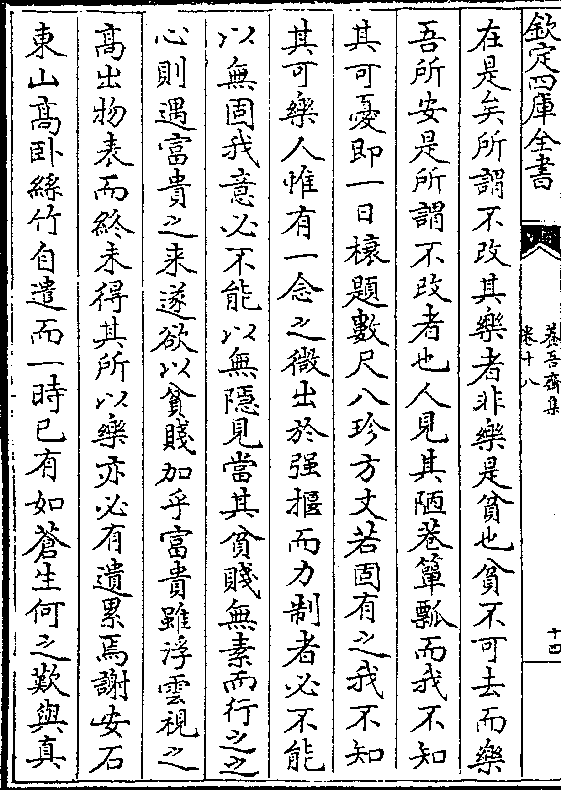 欽定四庫全書
養吾齋集
卷十八
十四
在是矣所謂不改其樂者非樂是貧也貧不可去而樂
吾所安是所謂不改者也人見其陋巷簞瓢而我不知
其可憂即一日榱題數尺八珍方丈若固有之我不知
其可樂人惟有一念之微出於强摳而力制者必不能
以無固我意必不能以無隱見當其貧賤無素而行之之
心則遇富貴之来遂欲以貧賤加乎富貴雖浮雲視之
高出物表而終未得其所以樂亦必有遺累焉謝安石
東山髙卧絲竹自遣而一時已有如蒼生何之歎與真